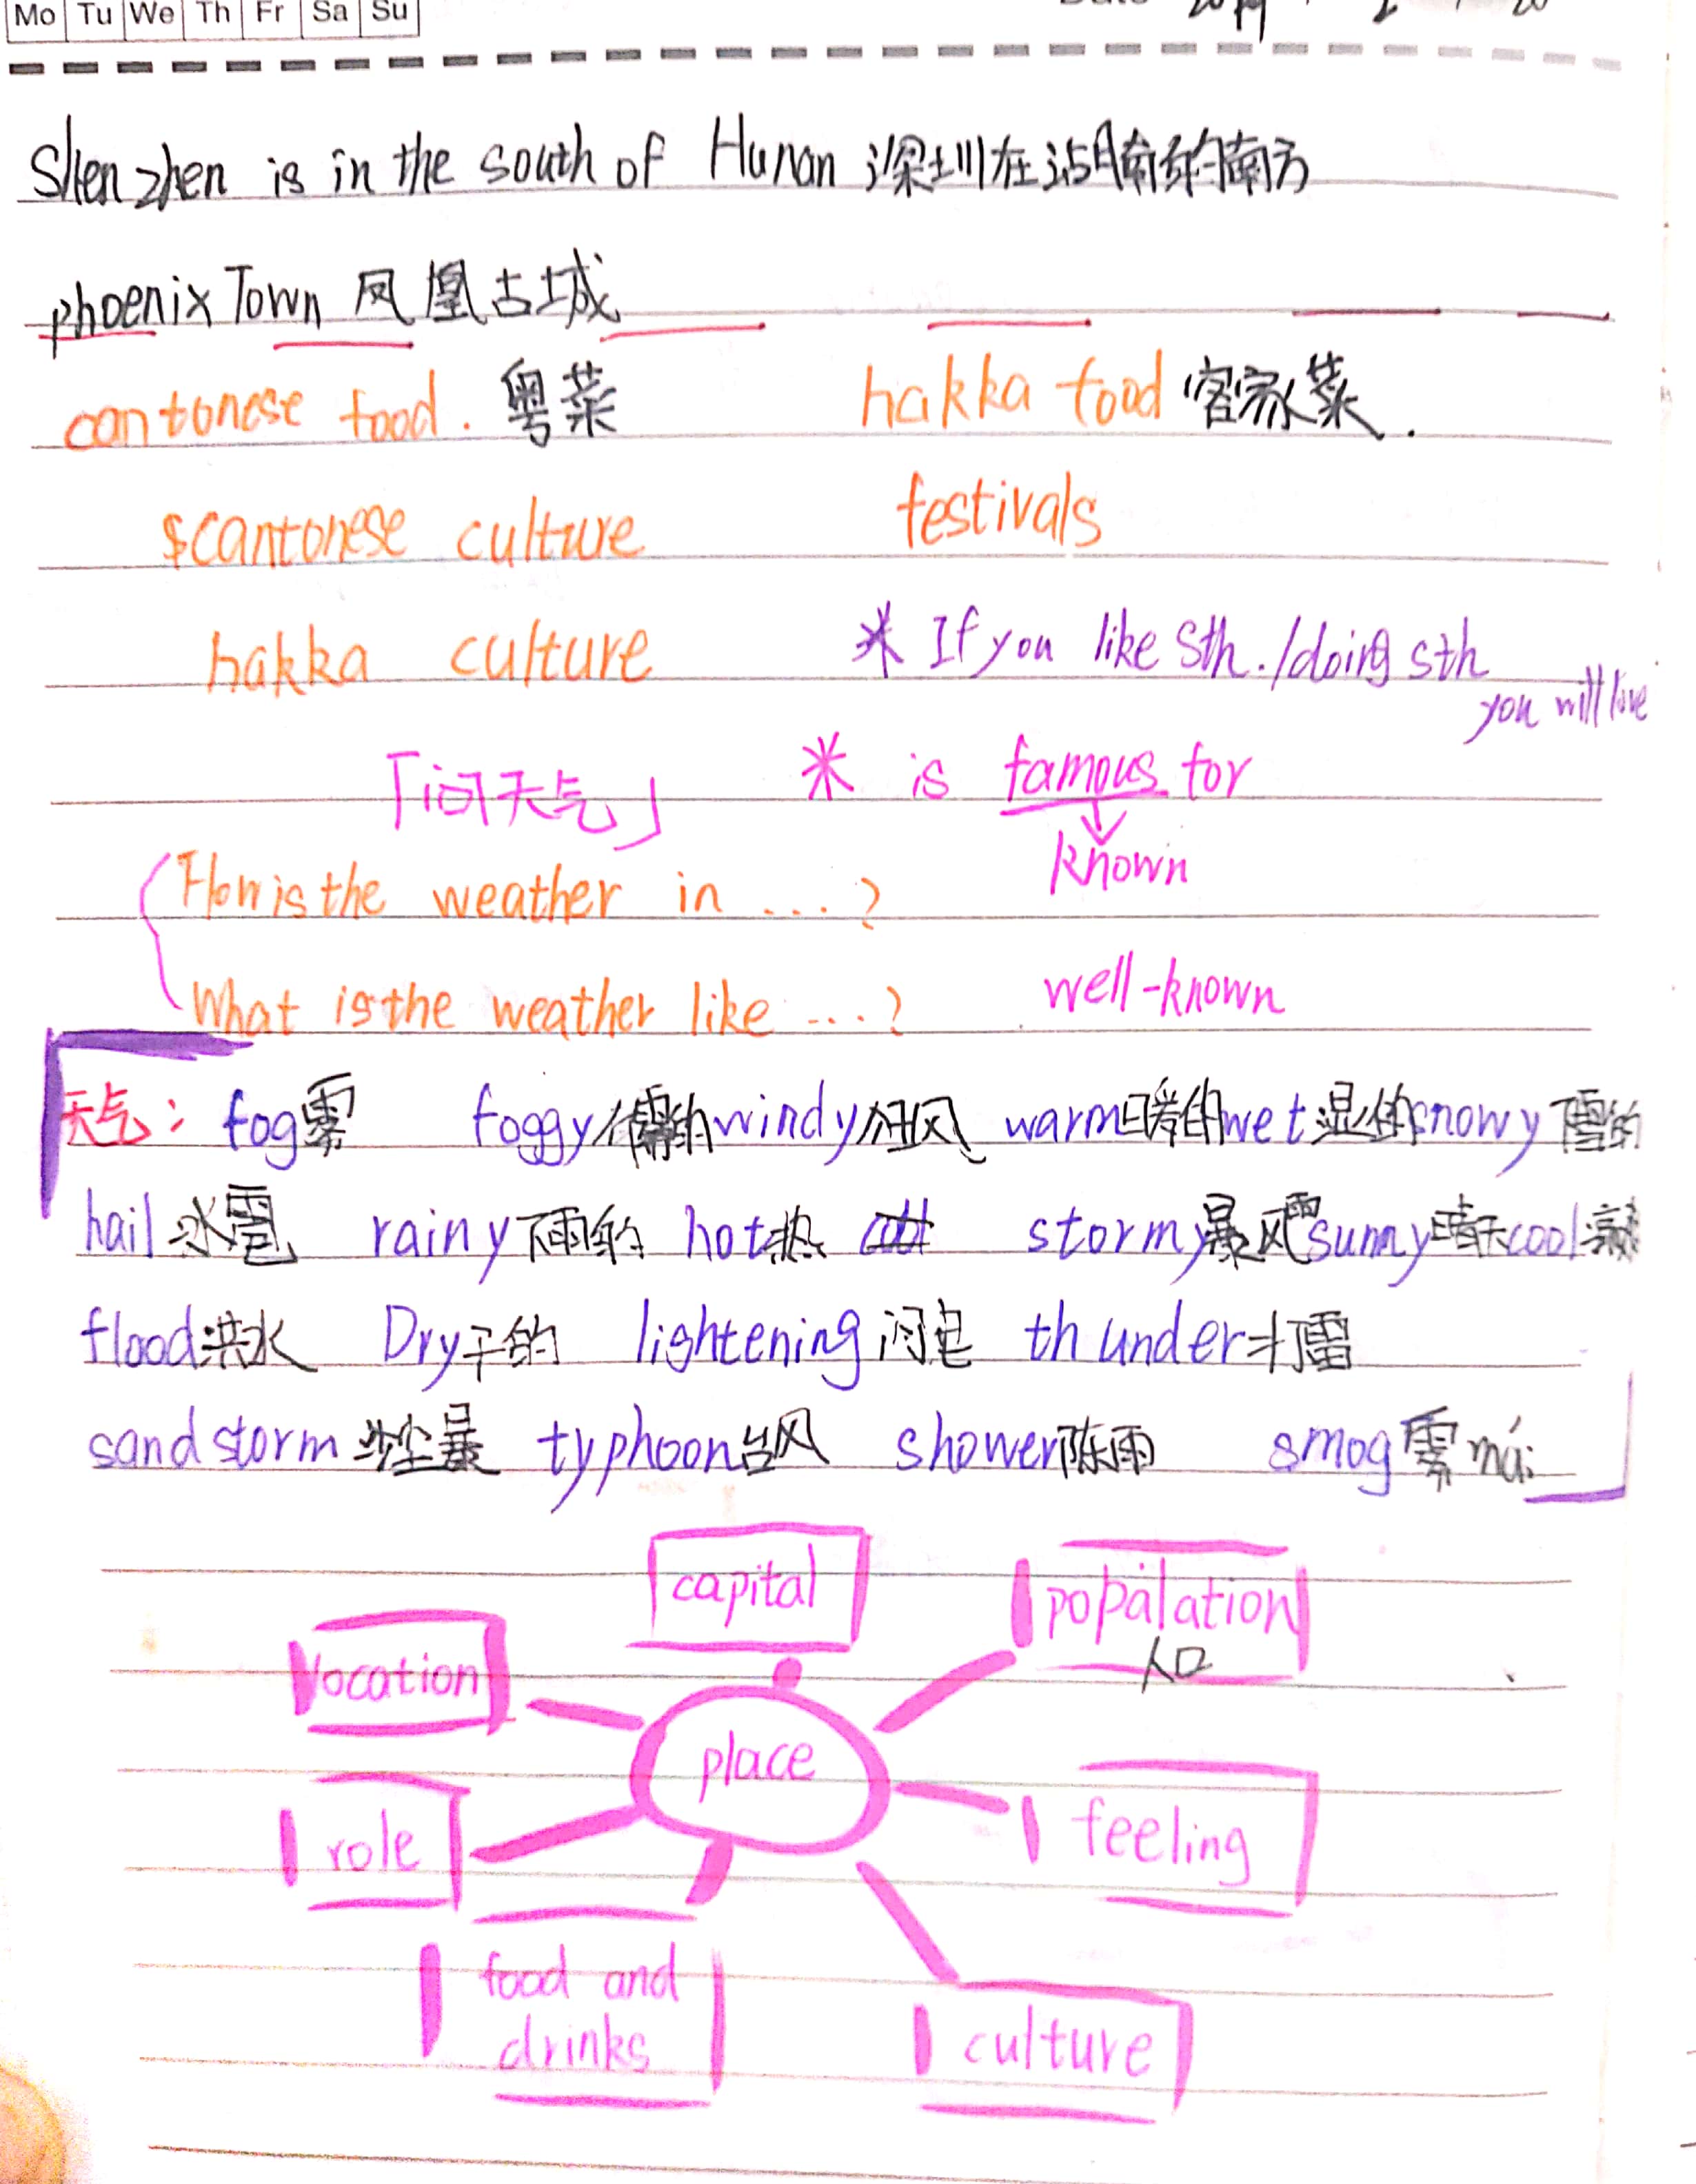 Mo Tu We Th Fr Sa Su
Shenzhen is in the south of Hunan 深圳在湖南的南方
phoenix Town 凤凰古城
cantonese food. 粤菜 hakka food 客家菜.
cantonese culture festivals
hakka culture * If you like sth. / doing sth
you will love
「问天气」 * is famous for
known
How is the weather in ... ?
What is the weather like ... ? well-known
天气: fog雾 foggy有雾的 windy有风 warm暖的 wet湿的 snowy下雪的
hail 冰雹 rainy下雨的 hot热 stormy暴风雪 sunny晴天 cool凉
flood洪水 Dry干的 lightening闪电 thunder打雷
sandstorm 沙尘暴 typhoon台风 shower陈雨 smog雾mái
capital popalation
人口
location
place
role feeling
food and
drinks culture